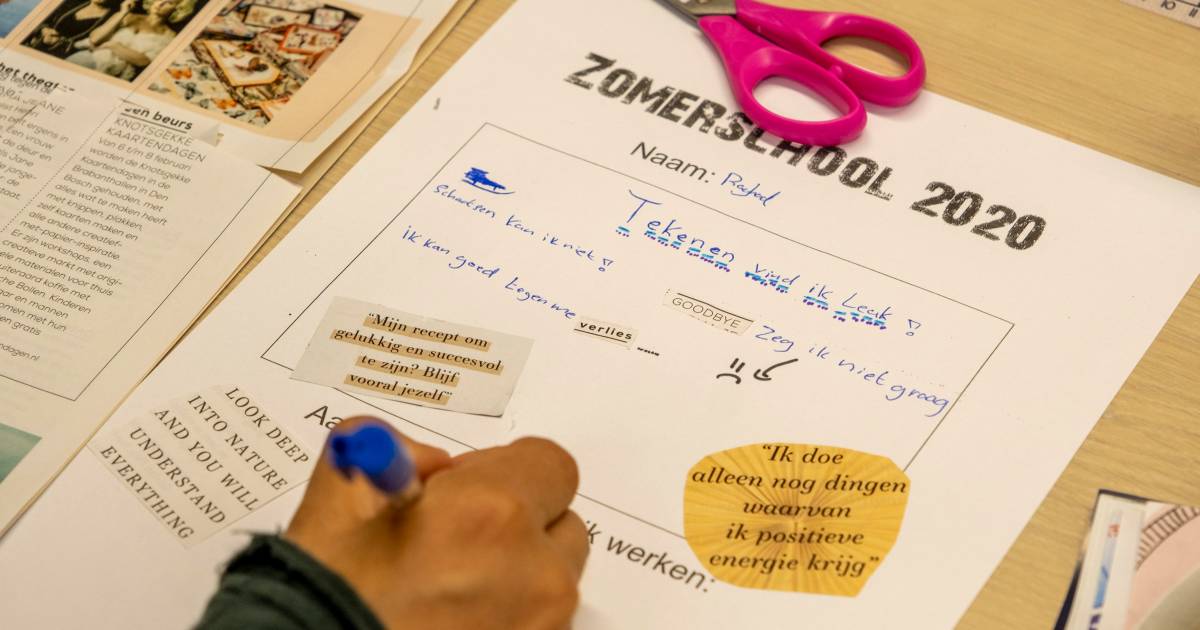 het theat
JEANE
een beurs
KNOTSGEKKE
KAARTENDAGEN
Van 6 t/m 8 februari
worden de Knotsgekke
Kaartendagen in de
Brabanthallen in Den
Bosch gehouden, met
alles wat te maken heeft
met knippen, plakken,
zelf kaarten maken en
alle andere creatief-
met-papier-inspiratie.
Er zijn workshops, een
creatieve markt met origi-
ele materialen voor thuis
uiteraard koffie met
che Bollen. Kinderen
aar en mannen
omen met hun
en gratis
ndagen.nl
ZOMERSCHOOL 2020
Naam:
Tekenen vind ik Leuk !
Schaatsen kan ik niet !
ik kan goed tegen me verlies
GOODBYE Zeg ik niet graag
"Mijn recept om
gelukkig en succesvol
te zijn? Blijf
vooral jezelf"
LOOK DEEP
INTO NATURE
AND YOU WILL
UNDERSTAND
EVERYTHING
Aa
ik werken:
"Ik doe
alleen nog dingen
waarvan
ik positieve
energie krijg"
10 11